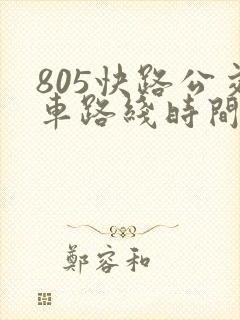 805快路公交
車路綫時間
鄭容和